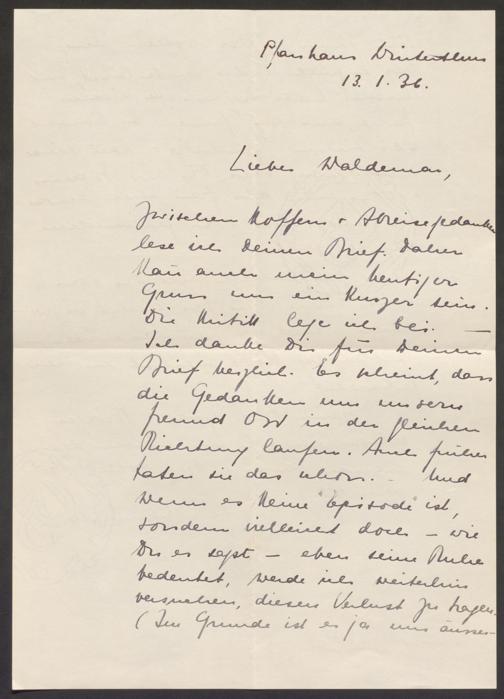 Pfarrhaus Winterthur
13. 1. 36.
Lieber Waldemar,
Zwischen Koffern + Abreisegedanken
lese ich Deinen Brief. Daher
kan auch mein heutiger
Gruss nur ein kurzer sein.
Die Kritik lege ich bei. —
Ich danke Dir für Deinen
Brief herzlich. Es scheint, dass
die Gedanken um unsern
freund in der gleichen
Richtung laufen. Auch früher
taten sie das schon. – Und
wenn es keine "Episode" ist,
sondern vielleicht doch – wie
Du es sagst – eben seine Ruhe
bedeutet, werde ich weiterhin
versuchen, diesen Verlust zu tragen.
(Im Grunde ist es ja nur äusser-